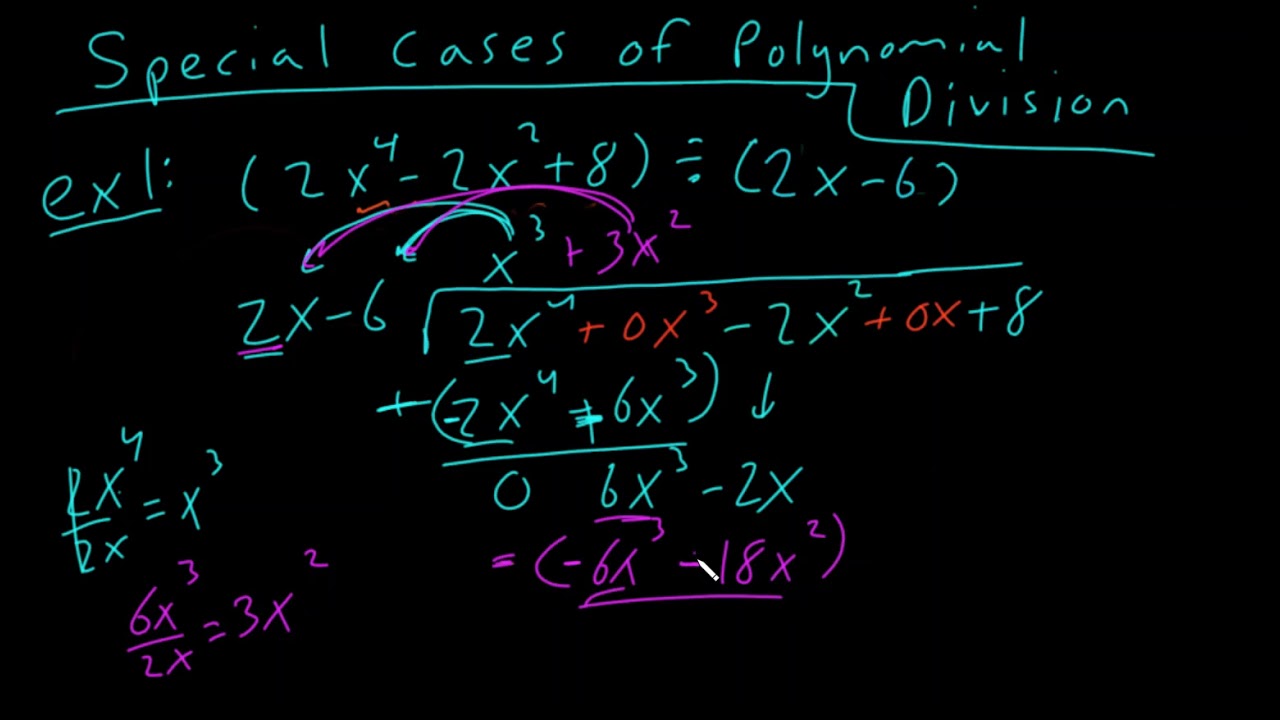 Special Cases of Polynomial
Division
ex1: (2x⁴ - 2x² + 8) ÷ (2x - 6)
x³ + 3x²
2x - 6 √2x⁴ + 0x³ - 2x² + 0x + 8
+(-2x⁴ + 6x³) ↓
0 6x³ - 2x
= (-6x³ - 18x²)
2x⁴/2x = x³
6x³/2x = 3x²